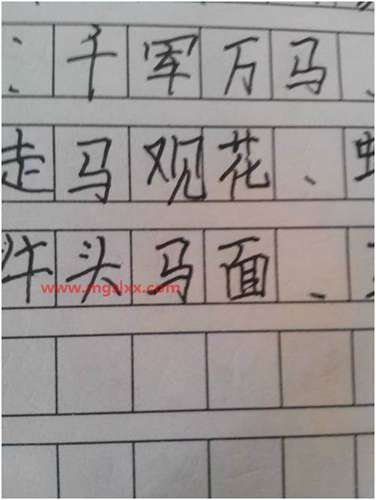 ：千军万马、
走马观花、
牛头马面、
www.mgslxx.com